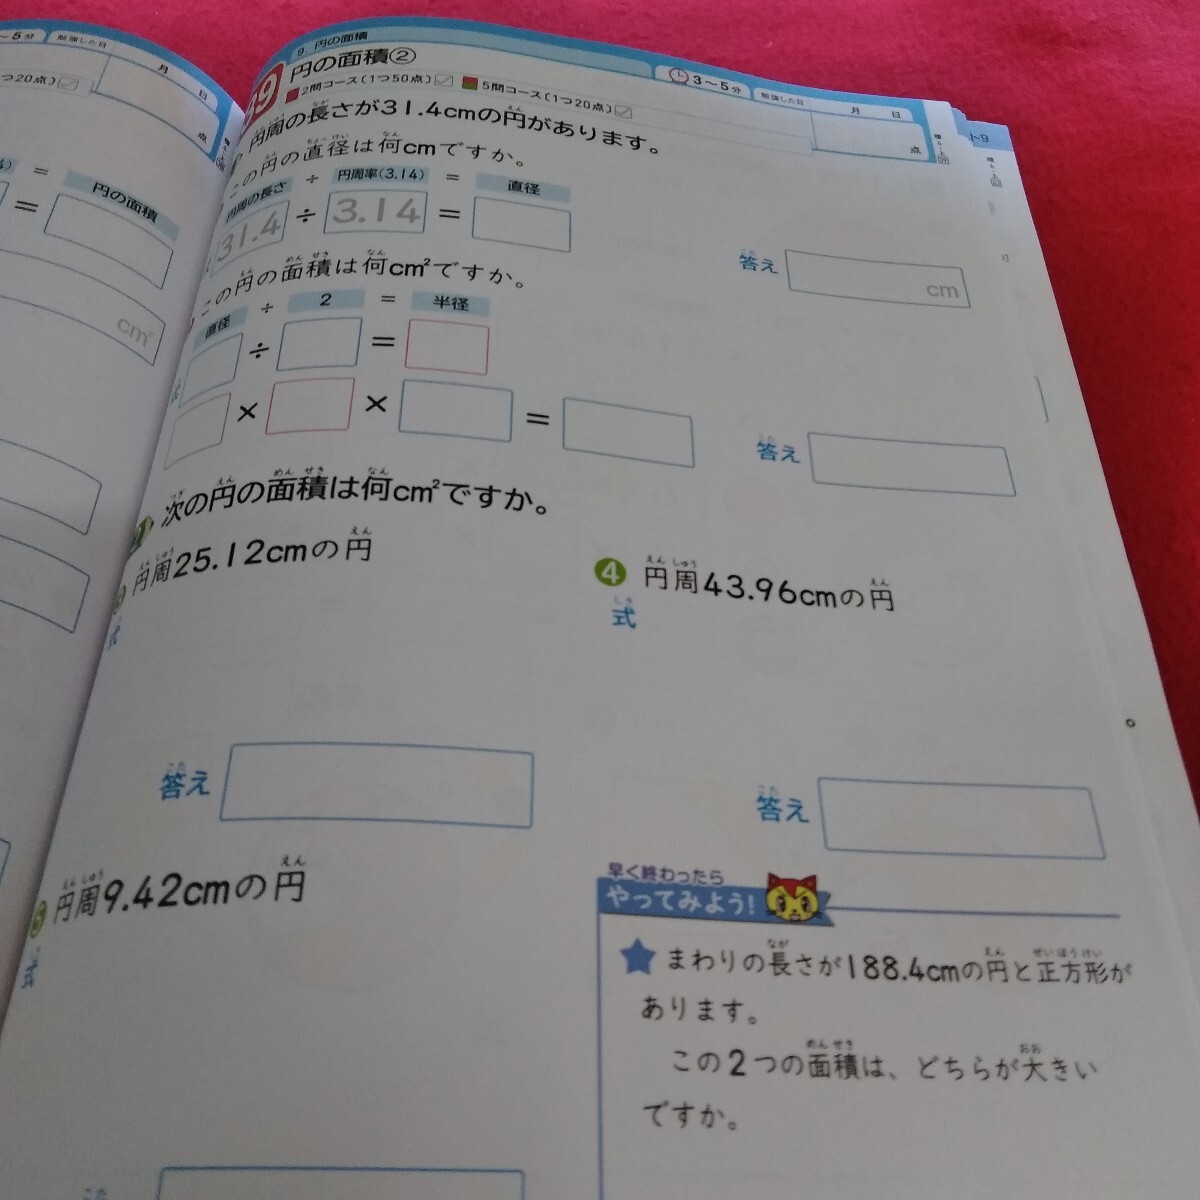 〜5分
勉強した日
月
日
つ20点)
点
=
円の面積
=
cm²
9. 円の面積
円の面積②
2問コース(1つ50点)
5問コース(1つ20点)
3〜5分
勉強した日
月
日
点
円周の長さが31.4cmの円があります。
この円の直径は何cmですか。
円周の長さ ÷ 円周率(3.14) = 直径
31.4 ÷ 3.14 =
答え
cm
この円の面積は何cm²ですか。
直径 ÷ 2 = 半径
÷ =
× × =
答え
次の円の面積は何cm²ですか。
円周25.12cmの円
式
答え
4 円周43.96cmの円
式
答え
5 円周9.42cmの円
式
早く終わったら
やってみよう!
まわりの長さが188.4cmの円と正方形が
あります。
この2つの面積は、どちらが大きい
ですか。